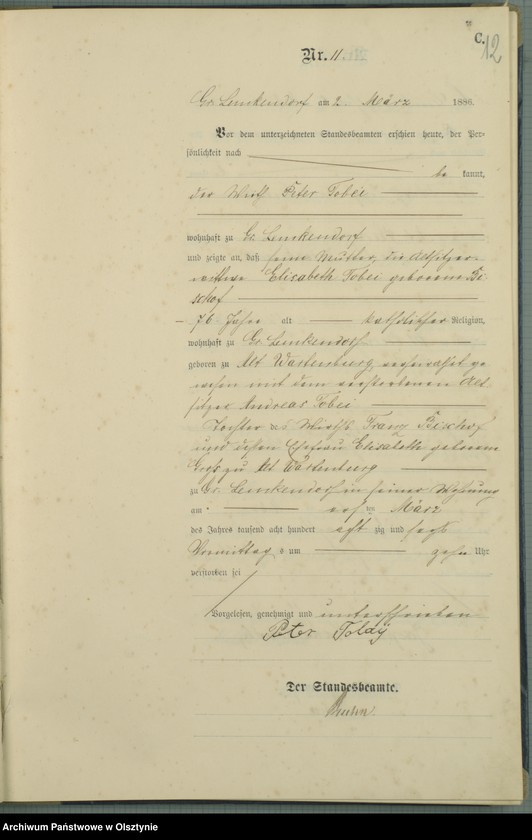 C.
12
Nr. 11.
Gr. Lemkendorf am 2. März 1886.
Vor dem unterzeichneten Standesbeamten erschien heute, der Per-
sönlichkeit nach
be kannt,
der Wirth Peter Tobei
wohnhaft zu Gr. Lemkendorf
und zeigte an, daß seine Mutter, die Altsitzer-
wittwe Elisabeth Tobei geborene Bi-
schof
76 Jahre alt katholischer Religion,
wohnhaft zu Gr. Lemkendorf
geboren zu Alt Wartenburg, verheirathet ge-
wesen mit dem verstorbenen Alt
sitzer Andreas Tobei
Tochter des Wirths Franz Bischof
und dessen Ehefrau Elisabeth geborene
zu Alt Wartenburg
zu Gr. Lemkendorf in seiner Wohnung
am ersten März
des Jahres tausend acht hundert acht zig und sechs
Vormittag s um zehn Uhr
verstorben sei
Vorgelesen, genehmigt und unterschrieben
Peter Tobay
Der Standesbeamte.
Archiwum Państwowe w Olsztynie